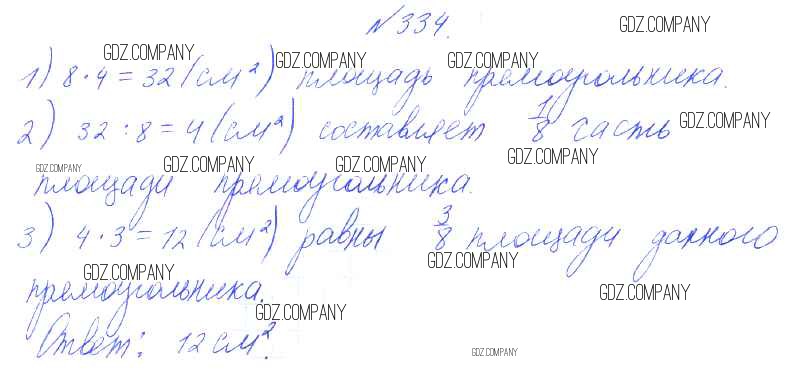 №334. GDZ.COMPANY
GDZ.COMPANY GDZ.COMPANY GDZ.COMPANY
1) 8·4=32 (см²) площадь прямоугольника.
2) 32:8=4 (см²) составляет 1/8 часть GDZ.COMPANY
GDZ.COMPANY GDZ.COMPANY GDZ.COMPANY GDZ.COMPANY
площади прямоугольника.
3) 4·3=12 (см²) равны 3/8 площади данного
GDZ.COMPANY GDZ.COMPANY
прямоугольника. GDZ.COMPANY
GDZ.COMPANY
Ответ: 12 см².
GDZ.COMPANY